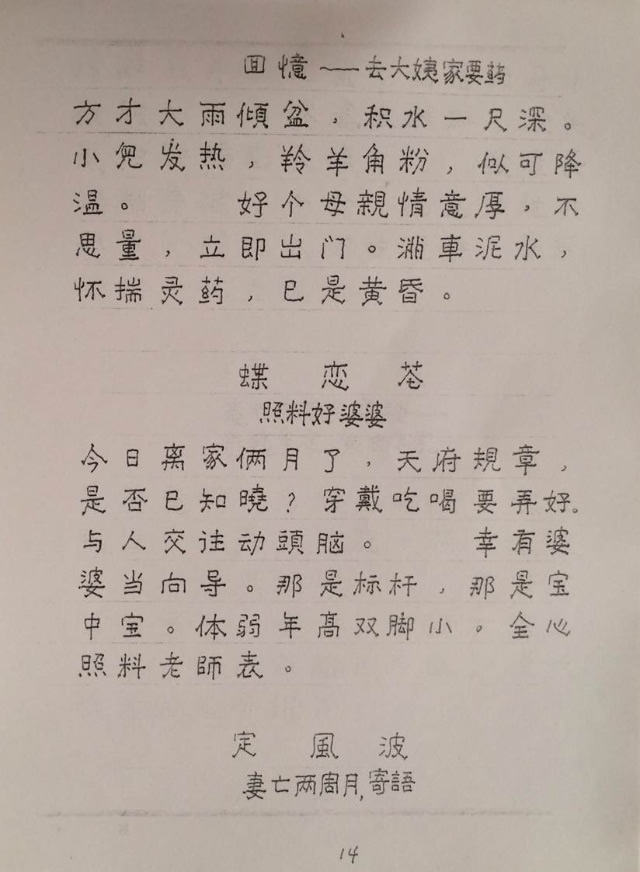 回憶——去大姨家要药
方才大雨傾盆，积水一尺深。
小兒发热，羚羊角粉，似可降
温。 好个母親情意厚，不
思量，立即出门。满車泥水，
怀揣灵药，已是黄昏。
蝶恋花
照料好婆婆
今日离家俩月了，天府規章，
是否已知曉？穿戴吃喝要弄好。
与人交往动頭脑。 幸有婆
婆当向导。那是标杆，那是宝
中宝。体弱年高双脚小。全心
照料老師表。
定風波
妻亡两周月,寄語
14